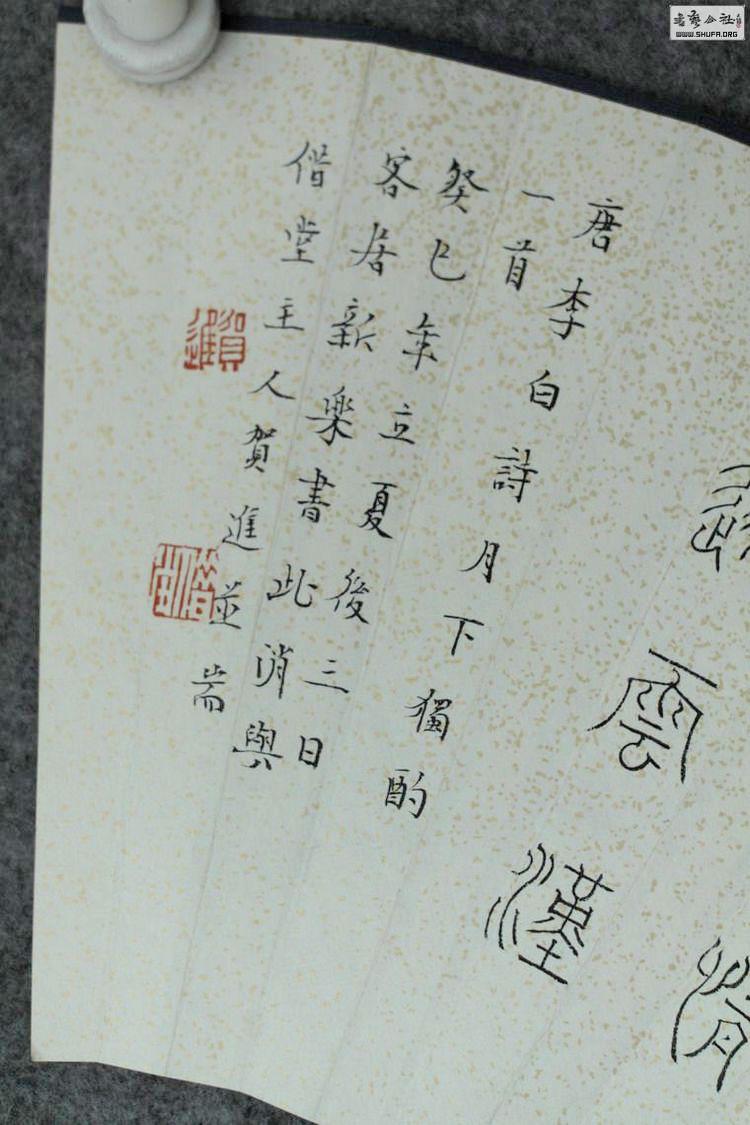 雲漢
唐李白詩月下獨酌
一首
癸巳年立夏後三日
客居新樂書此消興
偕堂主人賀進並耑
賀進
偕堂
書藝公社
WWW.SHUFA.ORG